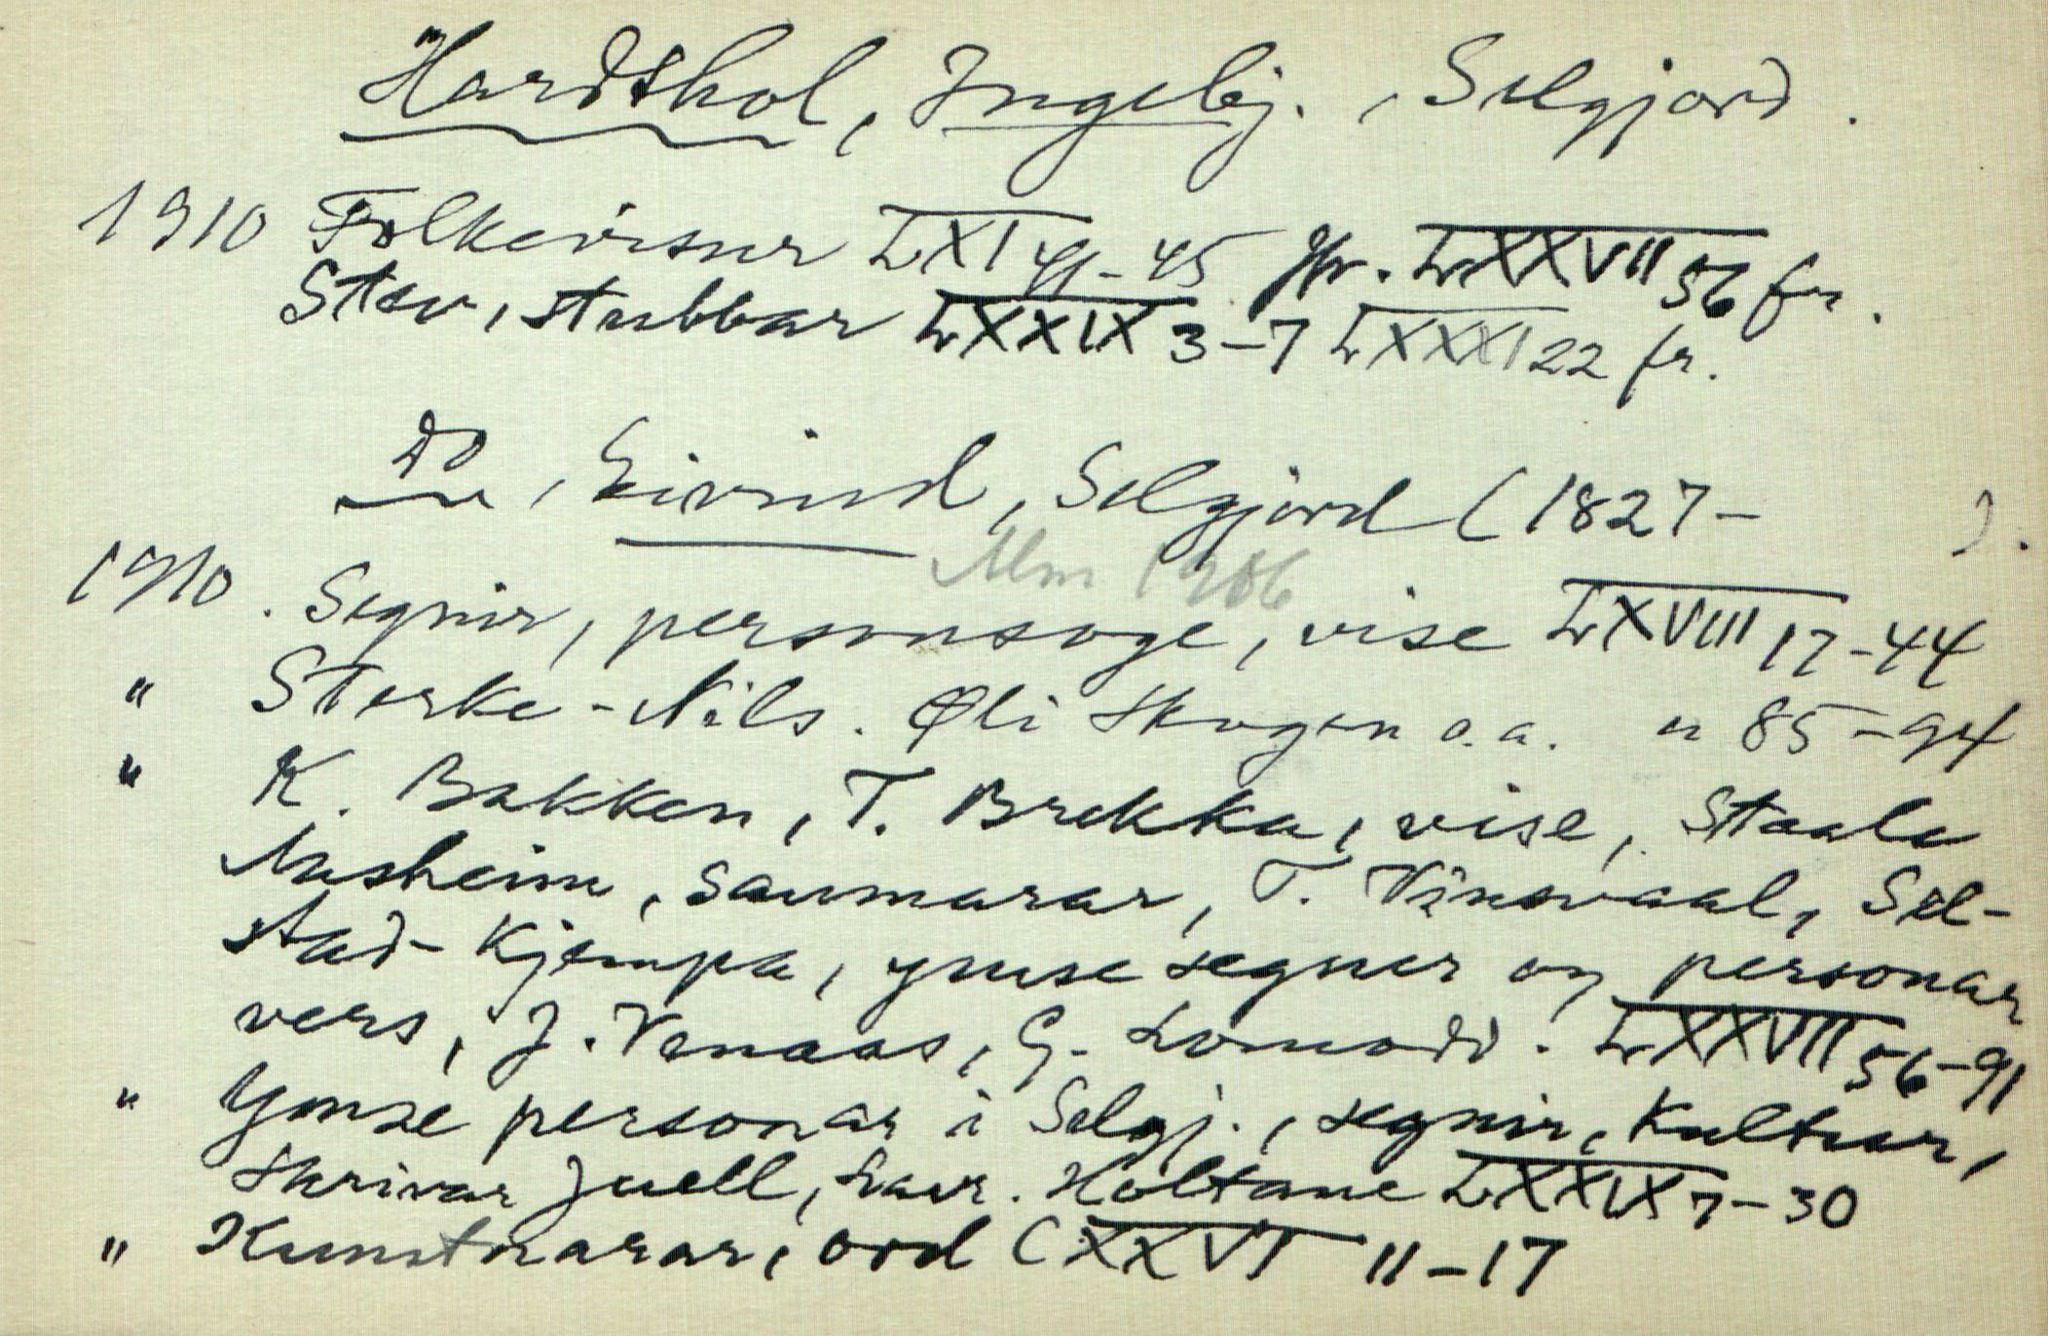 Hardskol, Ingebj., Selgjord.
1910 Folkevisur LXI 41-45 Jfr. LXXVII 56 fr.
Stev, stubbar LXXIX 3-7 LXXXI 22 fr.
do, Eivind, Selgjord (1827- ).
Mm 1906
1910. Segnir, personsoge, vise LXVIII 17-44
" Sterke-Nils. Øli Skogen o.a. " 85-94
" K. Bakken, T. Brekka, vise, Staale
Aasheim, saumarar, T. Vinsvaal, Sel-
stad-Kjempa, ymse segner og personar
vers, J. Venaas, G. LXXVII 56-91
" Ymse personar i Selgj., segnir, Kultur,
Skrivar Juell, Laur. Holtane LXXIX 7-30
" Kunstnarar, ord CXXVI 11-17